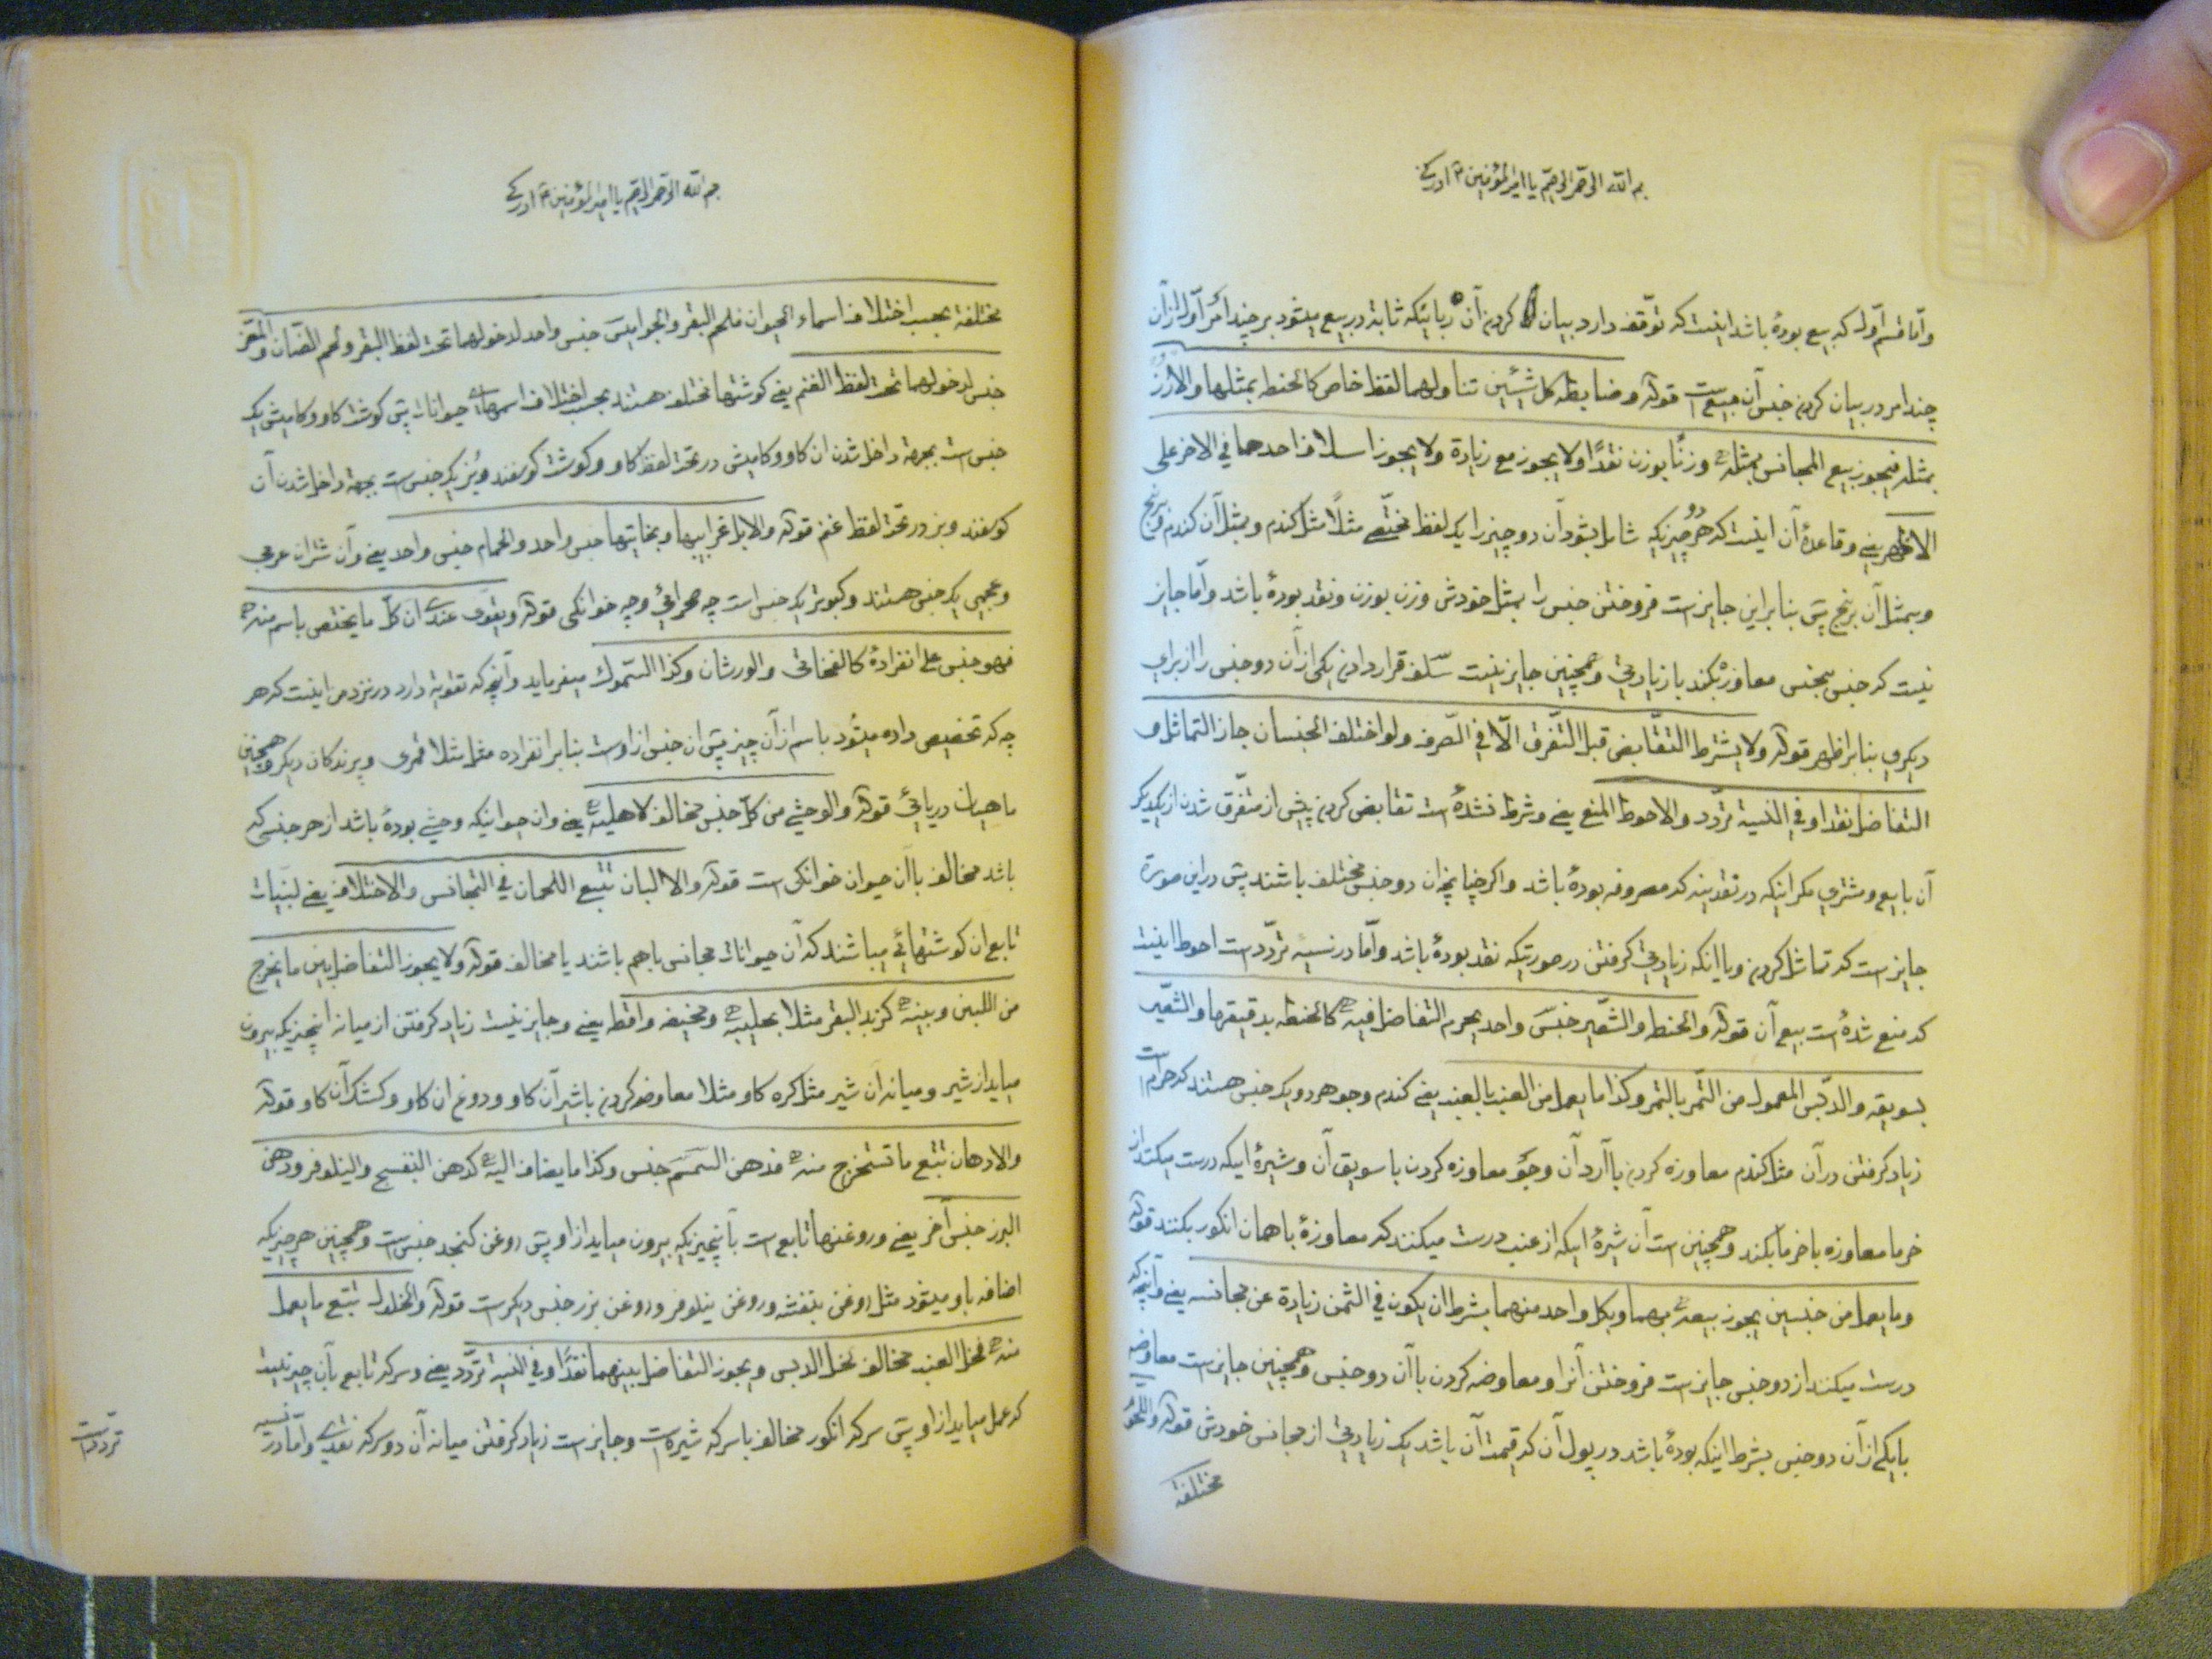 بسم الله الرحمن الرحیم یا امیرالمؤمنین ادرکنی
وامّا قسم اوّل که بیع بودهٔ باشد اینست که توقّف دارد بیان کردن آن ربائیکه ثابته در بیع میشود بر چند امر اوّل از آن
چند امر در بیان کردن جنس آن مبیع است قوله وضابطه کل شیئین تناولهما لفظ خاص کالحنطه بمثلها والأرُزّ
بمثله فیجوز بیع المجانس بمثله وزنًا بوزن نقدًا ولا یجوز مع زیادة ولا یجوز اسلاف احدهما فی الاخر علی
الاظهر یعنی وقاعدهٔ آن اینست که هر دو چیزیکه شامل بشود آن دو چیز را یک لفظ مختصّی مثلاً مثل کندم وبمثل آن کندم وبرنج
وبمثل آن برنج پس بنابراین جایز است فروختن جنس را بمثل خودش وزن بوزن ونقد بودهٔ باشد وامّا جایز
نیست که جنس بجنس معاوزه بکند با زیادتی وهمچنین جایز نیست سلف قرار دادن یکی از آن دو جنس را از برای
دیکری بنابر اظهر قوله ولا یشترط التقابض قبل التفرق الّا فی الصّرف ولو اختلف الجنسان جاز التماثل و
التفاضل نقدا وفی النسیة تردّد والاحوط المنع یعنی وشرط نشدهٔ است تقابض کردن پیش از متفرّق شدن از یکدیکر
آن بایع ومشتری مکر اینکه در نقدینه که مصروفه بودهٔ باشد واکر چنانچه ان دو جنس مختلف باشند پس در این صورة
جایز است که تماثل کردن ویا اینکه زیادتی کرفتن در صورتیکه نقد بودهٔ باشد وامّا در نسیه تردّد است احوط اینست
که منع شدهٔ است بیع آن قوله والحنطه والشّعیر جنسَ واحد یحرم التفاضل فیه کالحنطه بدقیقها والشّعیر
بسویقه والدّبس المعمول من التّمر بالتمر وکذا ما یعمل من العنب بالعنب یعنی کندم وجو هر دو یک جنس هستند که حرام است
زیاد کرفتن در آن مثل کندم معاوزه کردن با آرد آن وجَو معاوزه کردن با سویق آن وشیرهٔ ایکه درست میکنند از
خرما معاوزه با خرما بکند وهمچنین است آن شیرهٔ ایکه از عنب درست میکنند که معاوزهٔ با همان انکور بکنند قوله
وما یعمل من جنسین یجوز بیعه بهما وبکل واحد منهما بشرط ان یکون فی الثمن زیادة عن مجانسه یعنی وآنچه که
درست میکنند از دو جنس جایز است فروختن آنرا ومعاوضه کردن با آن دو جنس وهمچنین جایز است معاوضه
با یکی از آن دو جنس بشرط اینکه بودهٔ باشد در پول آن که قیمت آن باشد یک زیادتی از مجانس خودش قوله واللّحوم
مختلفة
بسم الله الرحمن الرحیم یا امیرالمؤمنین ادرکنی
مختلفة بحسب اختلاف اسماء الحیوان فلحم البقر والجوامیس جنس واحد لدخولهما تحت لفظ البقر ولحم الضّان والمعز
جنس لدخولهما تحت لفظ الغنم یعنی کوشتها مختلف هستند بحسب اختلاف اسمهای حیوانات پس کوشت کاو وکامیش یک
جنس است بجهة داخل شدن ان کاو وکامیش در تحت لفظ کاو وکوشت کوسفند وبُز یک جنس است بجهة داخل شدن آن
کوسفند وبز در تحت لفظ غنم قوله والابل عرابیها وبخاتیها جنس واحد والحمام جنس واحد یعنی وآن شتران عربی
وعجمی یک جنس هستند وکبوتر یک جنس است چه صحرائی وچه خوانکی قوله ویقوی عندی ان کلّ ما یختص باسم منه
فهو جنس علی انفراده کالفخاتی والورشان وکذا السّموک میفرماید وآنچه که تقویة دارد در نزد من اینست که هر
چه که تخصیص داده میشود باسم از آن چیز پس ان جنس از اوست بنابر انفراده مثل مثلا قمری وپرندکان دیکر وهمچنین
ماهیان دریائی قوله والوحشی من کلّ جنس مخالف لاهلیه یعنی وان حیوانیکه وحشی بودهٔ باشد از هر جنسی که
باشد مخالف با آن حیوان خوانکی است قوله والالبان تتبع اللحمان فی التجانس والاختلاف یعنی لبنیات
تابع ان کوشتهائی میباشند که آن حیوانات مجانس باهم باشند یا مخالف قوله ولا یجوز التفاضل بین ما یخرج
من اللبن وبینه کزبد البقر مثلا بحلیبه ومخیضه واقطه یعنی وجایز نیست زیاد کرفتن از میانه انچیزیکه بیرون
میاید از شیر ومیانه ان شیر مثل کره کاو مثلا معاوضه کردن با شیر آن کاو ودوغ ان کاو وکشک آن کاو قوله
والادهان تتبع ما تستخرج منه فدهن السّمسَم جنس وکذا ما یضاف الیه کدهن البنفسج والنیلوفر ودهن
البزر جنس آخر یعنی وروغنها تابع است بآنچیزیکه بیرون میاید از او پس روغن کنجد جنس است وهمچنین هر چیزیکه
اضافه باو میشود مثل روغن بنفشه وروغن نیلوفر وروغن بزر جنس دیکر است قوله والخلول تتبع ما یعمل
منه فخل العنب مخالف لخل الدبس ویجوز التفاضل بینهما نقدًا وفی النسیه تردّد یعنی وسرکه تابع بآن چیز نیست
که عمل میاید از او پس سرکه انکور مخالف با سرکه شیره است وجایز است زیاد کرفتن میانه آن دو سرکه نقدی وامّا در نسیه
تردّد است